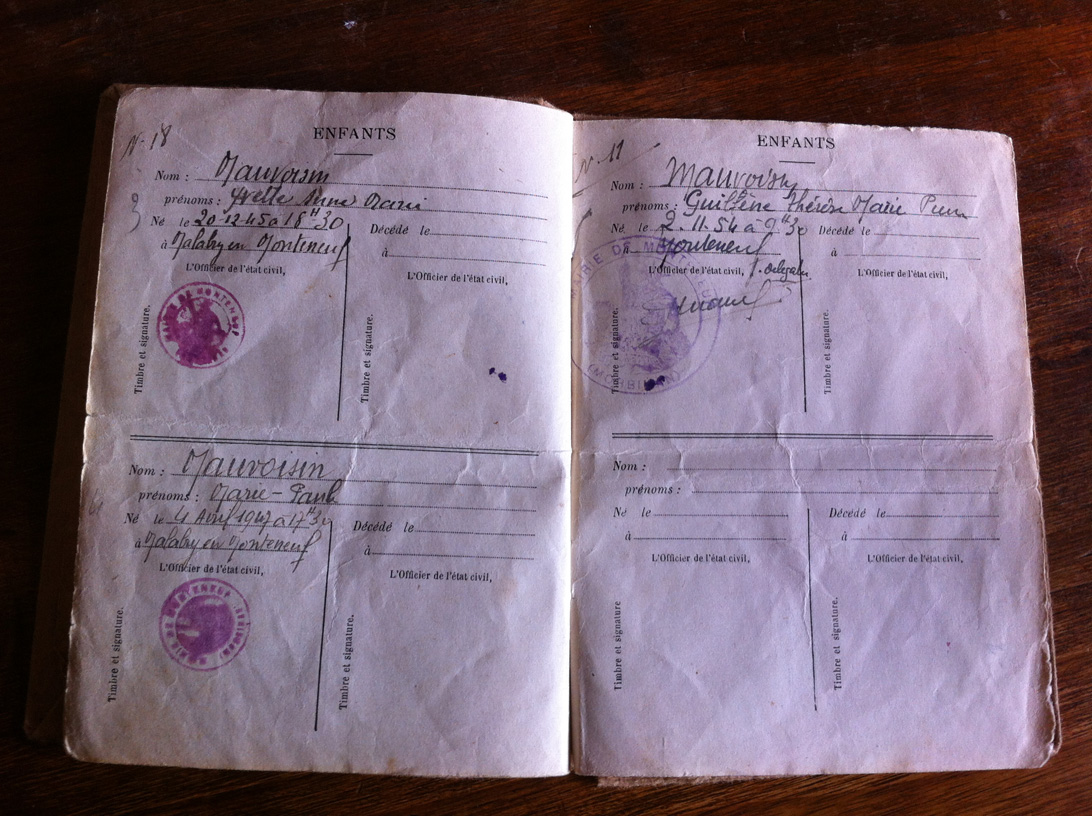 N° 18
ENFANTS
Nom : Mauvoisin
prénoms : Yvette Anne Marie
Né le 20-12-45 à 18H30
Décédé le
à Malaby en Monteneuf
à
L'Officier de l'état civil,
L'Officier de l'état civil,
Timbre et signature.
Timbre et signature.
MAIRIE DE MONTENEUF
Nom : Mauvoisin
prénoms : Marie-Paule
Né le 4 Avril 1947 à 17H30
Décédé le
à Malaby en Monteneuf
à
L'Officier de l'état civil,
L'Officier de l'état civil,
Timbre et signature.
Timbre et signature.
MAIRIE DE MONTENEUF (MORBIHAN)
N° 11
ENFANTS
Nom : Mauvoisin
prénoms : Guilène Thérèse Marie
Né le 2.11.54 à 9H30
Décédé le
à Monteneuf
à
L'Officier de l'état civil,
L'Officier de l'état civil,
Timbre et signature.
Timbre et signature.
MAIRIE DE MONTENEUF
(MORBIHAN)
Nom :
prénoms :
Né le
Décédé le
à
à
L'Officier de l'état civil,
L'Officier de l'état civil,
Timbre et signature
Timbre et signature.